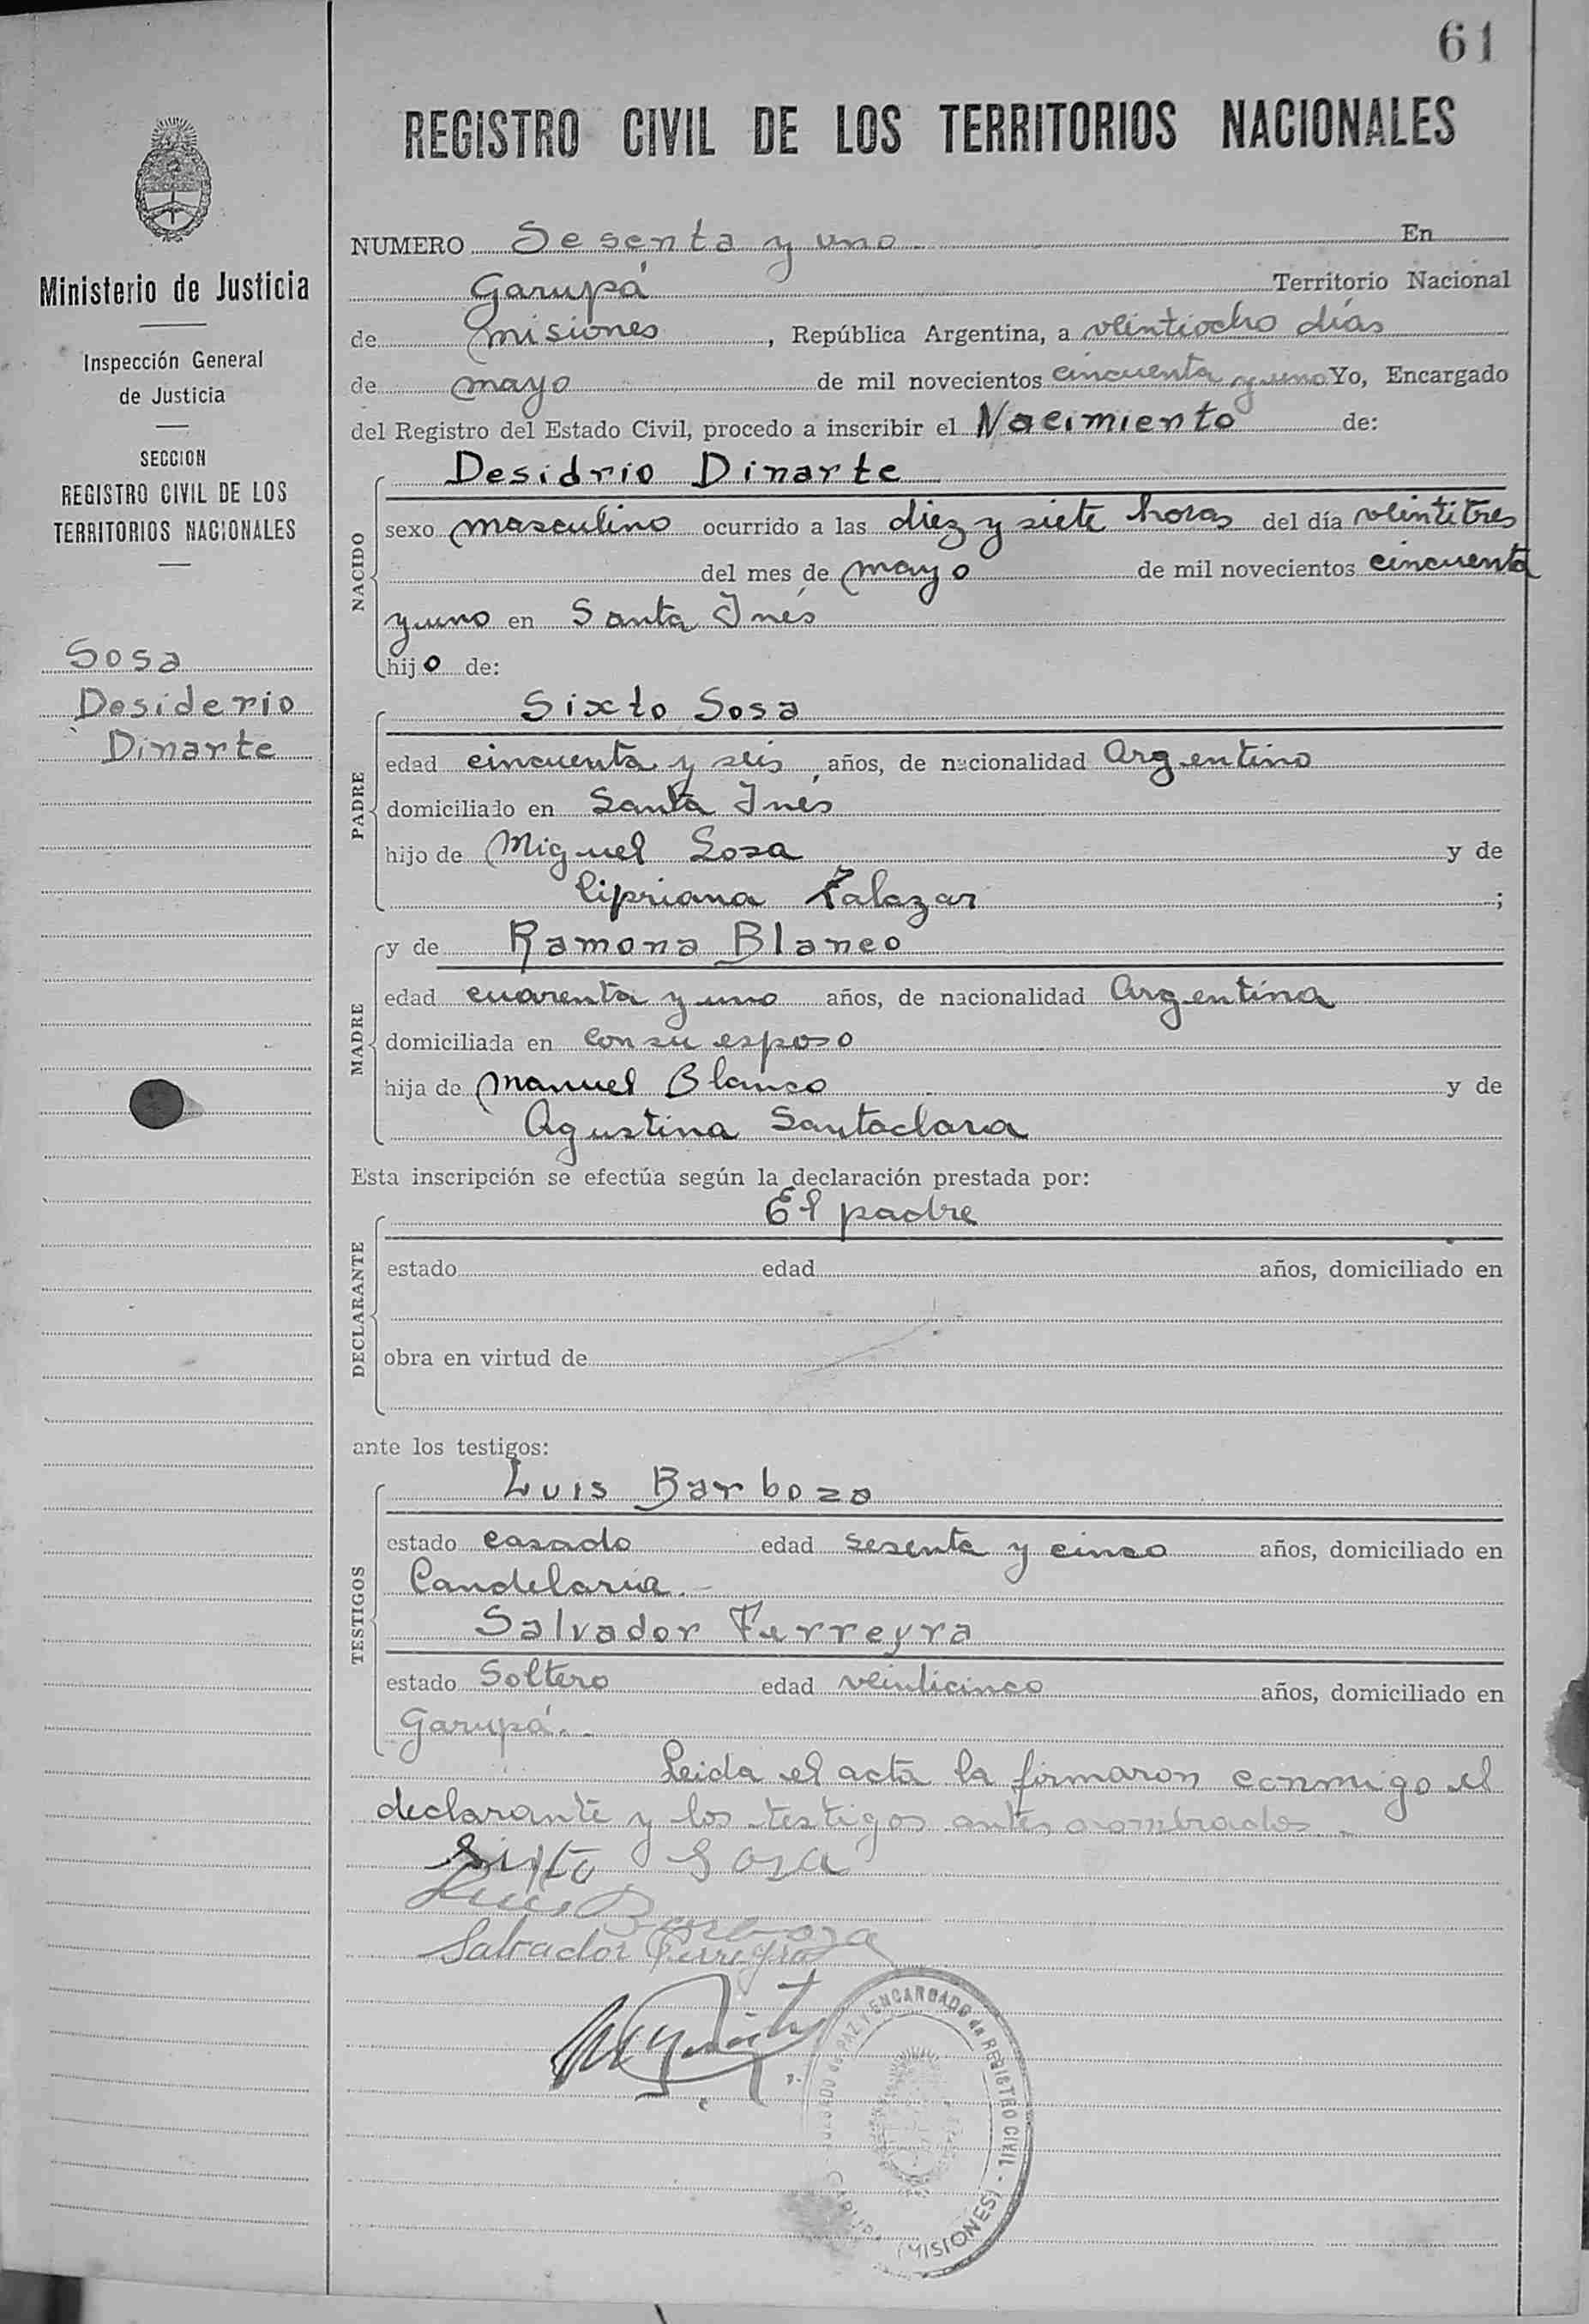 61
REGISTRO CIVIL DE LOS TERRITORIOS NACIONALES
Ministerio de Justicia
Inspección General
de Justicia
SECCION
REGISTRO CIVIL DE LOS
TERRITORIOS NACIONALES
Sosa
Desiderio
Dinarte
NUMERO Sesenta y uno En
Garupá Territorio Nacional
de misiones, República Argentina, a veintiocho días
de mayo de mil novecientos cincuenta y uno Yo, Encargado
del Registro del Estado Civil, procedo a inscribir el Nacimiento de:
NACIDO
Desidrio Dinarte
sexo masculino ocurrido a las diez y siete horas del día veintitres
del mes de mayo de mil novecientos cincuenta
y uno en Santa Inés
hijo de:
PADRE
Sixto Sosa
edad cincuenta y seis años, de nacionalidad Argentino
domiciliado en Santa Inés
hijo de Miguel Sosa y de
Cipriana Zalazar ;
MADRE
y de Ramona Blanco
edad cuarenta y uno años, de nacionalidad Argentina
domiciliada en con su esposo
hija de Manuel Blanco y de
Agustina Santaclara
Esta inscripción se efectúa según la declaración prestada por:
DECLARANTE
El padre
estado edad años, domiciliado en
obra en virtud de
ante los testigos:
TESTIGOS
Luis Barboza
estado casado edad sesenta y cinco años, domiciliado en
Candelaria.-
Salvador Ferreyra
estado Soltero edad veinticinco años, domiciliado en
Garupá.-
Leida el acta la firmaron conmigo el
declarante y los testigos antes nombrados -
Sixto Sosa
Luis Barboza
Salvador Ferreyra
JUZGADO de PAZ y ENCARGADO de REGISTRO CIVIL -
(MISIONES)